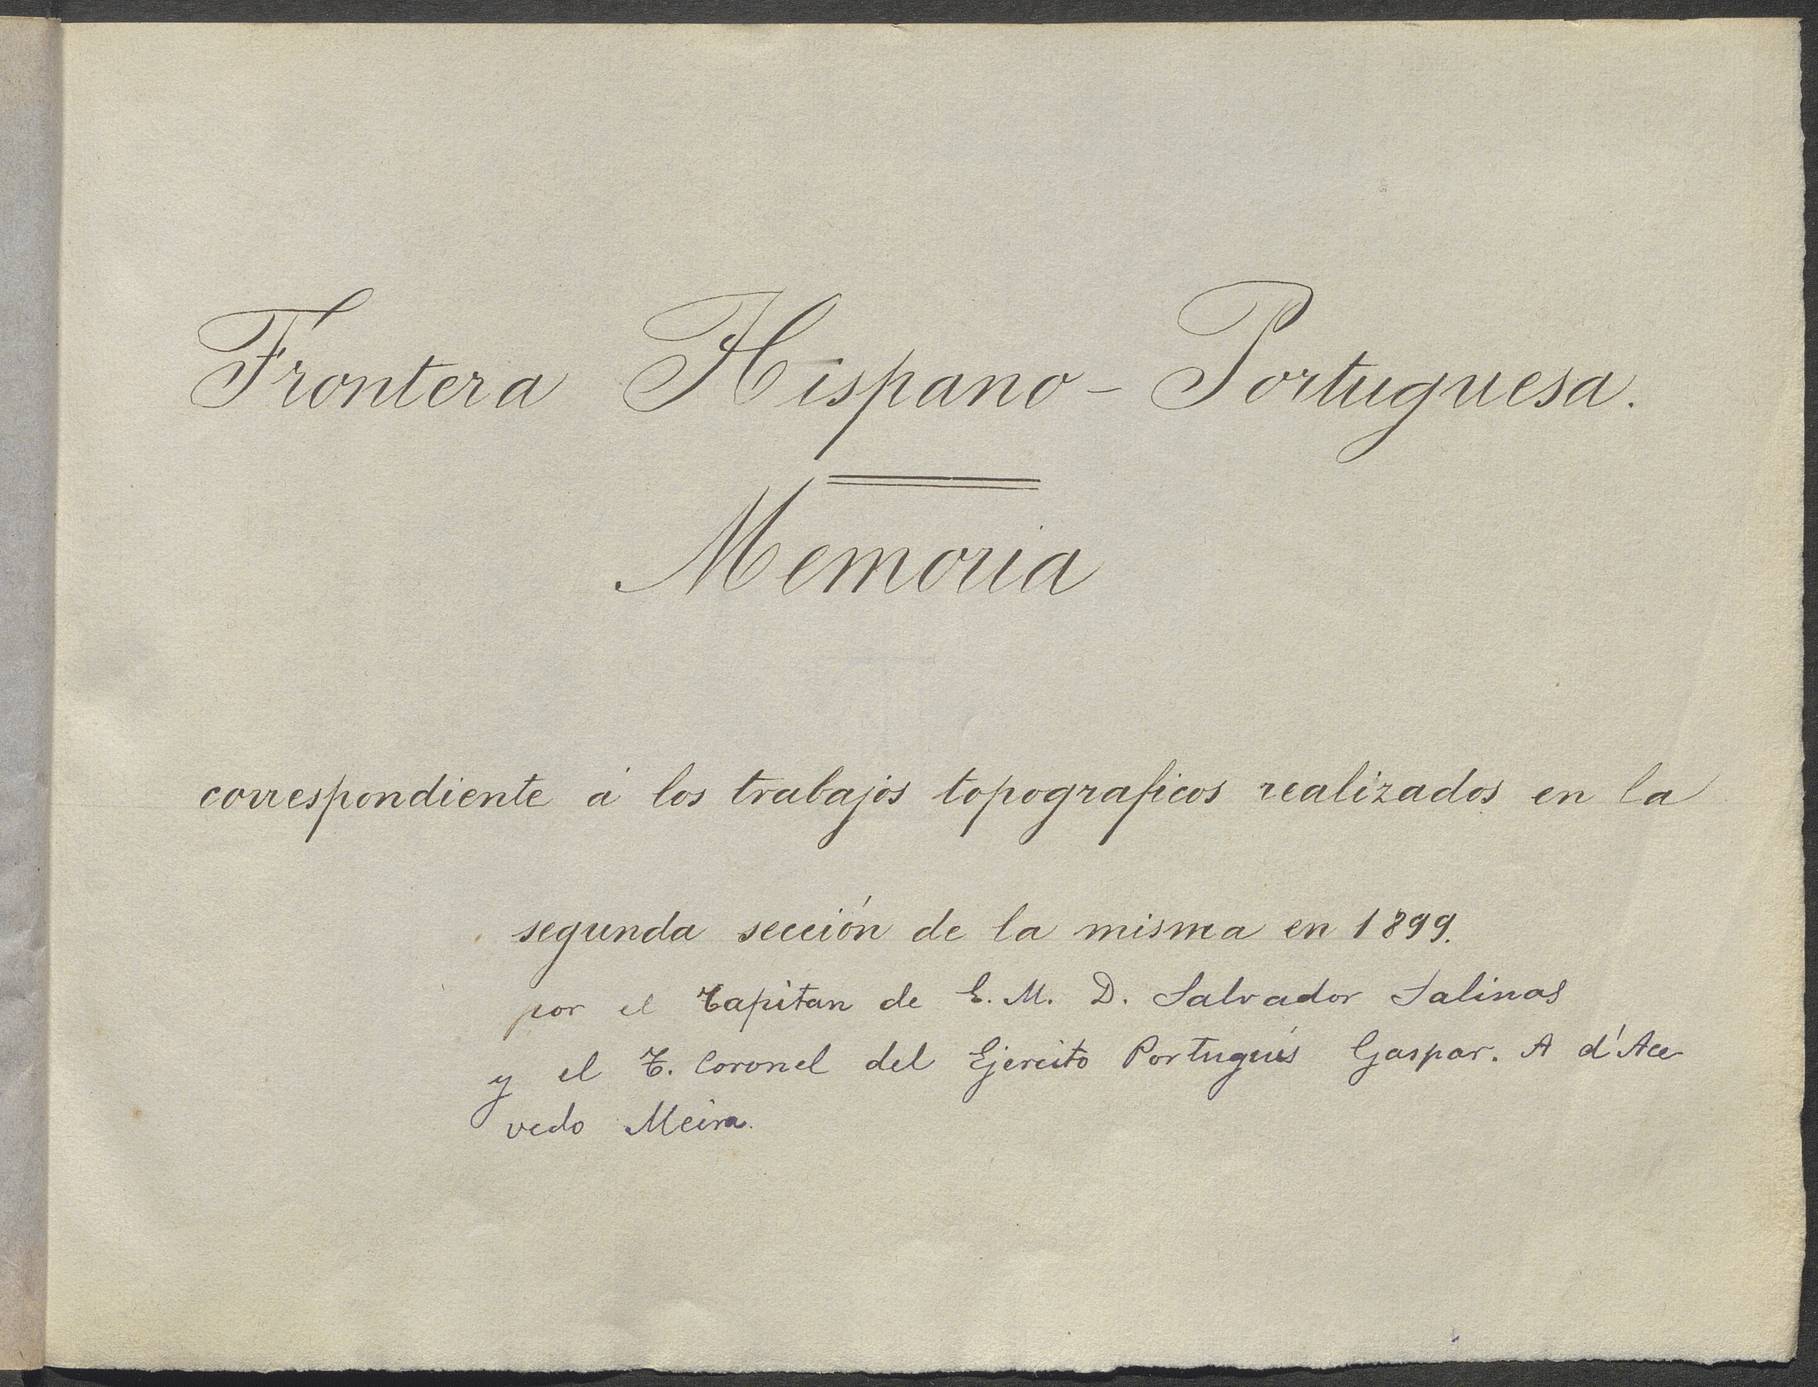 Frontera Hispano-Portuguesa.
Memoria
correspondiente á los trabajos topograficos realizados en la
segunda sección de la misma en 1899.
por el Capitan de E. M. D. Salvador Salinas
y el T. Coronel del Ejercito Portugués Gaspar. A d'Ace
vedo Meira.